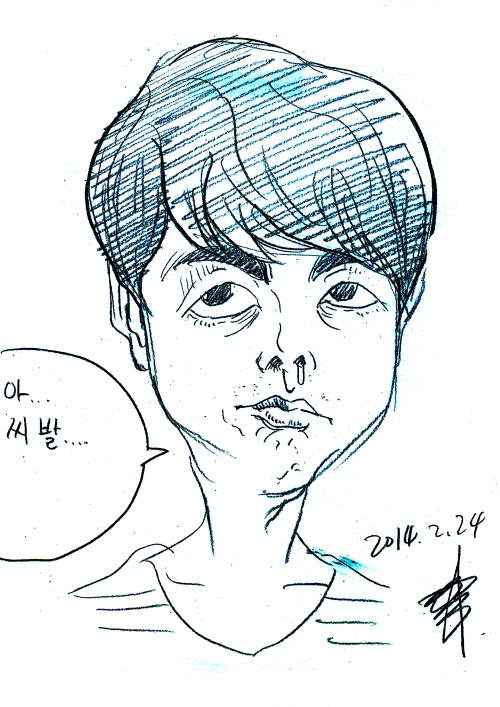 아...
씨발....
2014.2.24